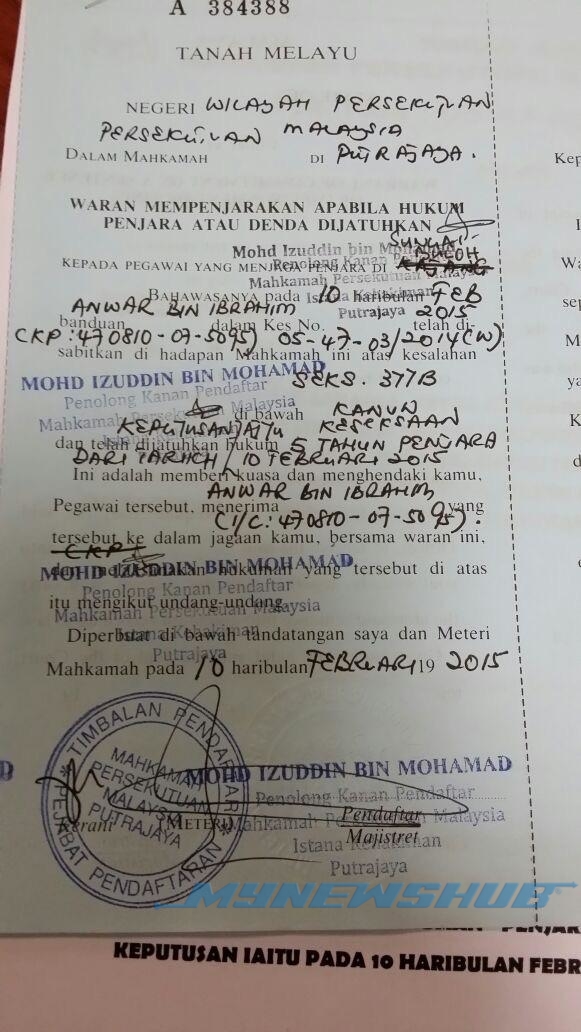 A 384388
TANAH MELAYU
NEGERI WILAYAH PERSEKUTUAN
PERSEKUTUAN MALAYSIA
DALAM MAHKAMAH DI PUTRAJAYA.
WARAN MEMPENJARAKAN APABILA HUKUM
PENJARA ATAU DENDA DIJATUHKAN
Mohd Izuddin bin Mohamad
SUNGAI
BULOH
Penolong Kanan Pendaftar
KEPADA PEGAWAI YANG MENJAGA PENJARA DI KAJANG
Mahkamah Persekutuan Malaysia
BAHAWASANYA pada 10 haribulan FEB
Istana Kehakiman
Putrajaya
ANWAR BIN IBRAHIM 2015
banduan dalam Kes No. telah di-
CKP: 470810-07-5095) 05-47-03/2014(W)
sabitkan di hadapan Mahkamah ini atas kesalahan
MOHD IZUDDIN BIN MOHAMAD SEKS. 377B
Penolong Kanan Pendaftar
Mahkamah Persekutuan Malaysia
di bawah KANUN
KEPUTUSAN IAITU KESEKSAAN
dan telah dijatuhkan hukum 5 TAHUN PENJARA
DARI TARIKH 10 FEBRUARI 2015
Ini adalah memberi kuasa dan menghendaki kamu,
ANWAR BIN IBRAHIM
Pegawai tersebut, menerima yang
(I/C: 470810-07-5095).
tersebut ke dalam jagaan kamu, bersama waran ini,
CKP
MOHD IZUDDIN BIN MOHAMAD
dan melaksanakan hukuman yang tersebut di atas
Penolong Kanan Pendaftar
itu mengikut undang-undang.
Mahkamah Persekutuan Malaysia
Istana Kehakiman
Diperbuat di bawah tandatangan saya dan Meteri
Putrajaya
Mahkamah pada 10 haribulan FEBRUARI 19 2015
TIMBALAN PENDAFTAR
PEJABAT PENDAFTARAN
MAHKAMAH
PERSEKUTUAN
MALAYSIA
PUTRAJAYA
MOHD IZUDDIN BIN MOHAMAD
Penolong Kanan Pendaftar
Pendaftar
Kerani (METERI) Mahkamah Persekutuan Malaysia
Majistret
Istana Kehakiman
Putrajaya
MYNEWSHUB
KEPUTUSAN IAITU PADA 10 HARIBULAN FEBR